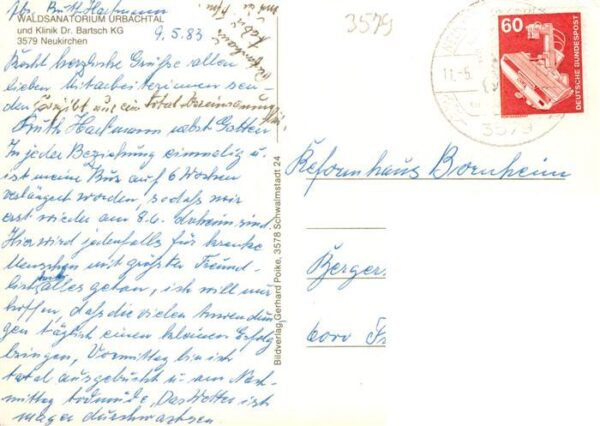 Abs. Ruth Hartmann
WALDSANATORIUM URBACHTAL
und Klinik Dr. Bartsch KG
3579 Neukirchen
9.5.83
3579
60
DEUTSCHE BUNDESPOST
11.-5.
3579
Recht herzliche Grüße allen
lieben Mitarbeiterinnen sen-
den
Ruth Hartmann nebst Gatten
In jeder Beziehung einmalig u.
ist meine Kur auf 6 Wochen
verlängert worden, sodass wir
erst wieder am 8.6. daheim sind.
Hier wird jedenfalls für kranke
Menschen mit größter Freund-
lichkeit alles getan, ich will nur
hoffen, daß die vielen Anwendun-
gen täglich einen kleinen Erfolg
bringen, Vormittag bin ich
total ausgebucht u. am Nach-
mittag todmüde. Das Wetter ist
mager durchwachsen
Bildverlag Gerhard Poike, 3578 Schwalmstadt 24
Reformhaus Bornheim
Berger
6000 F